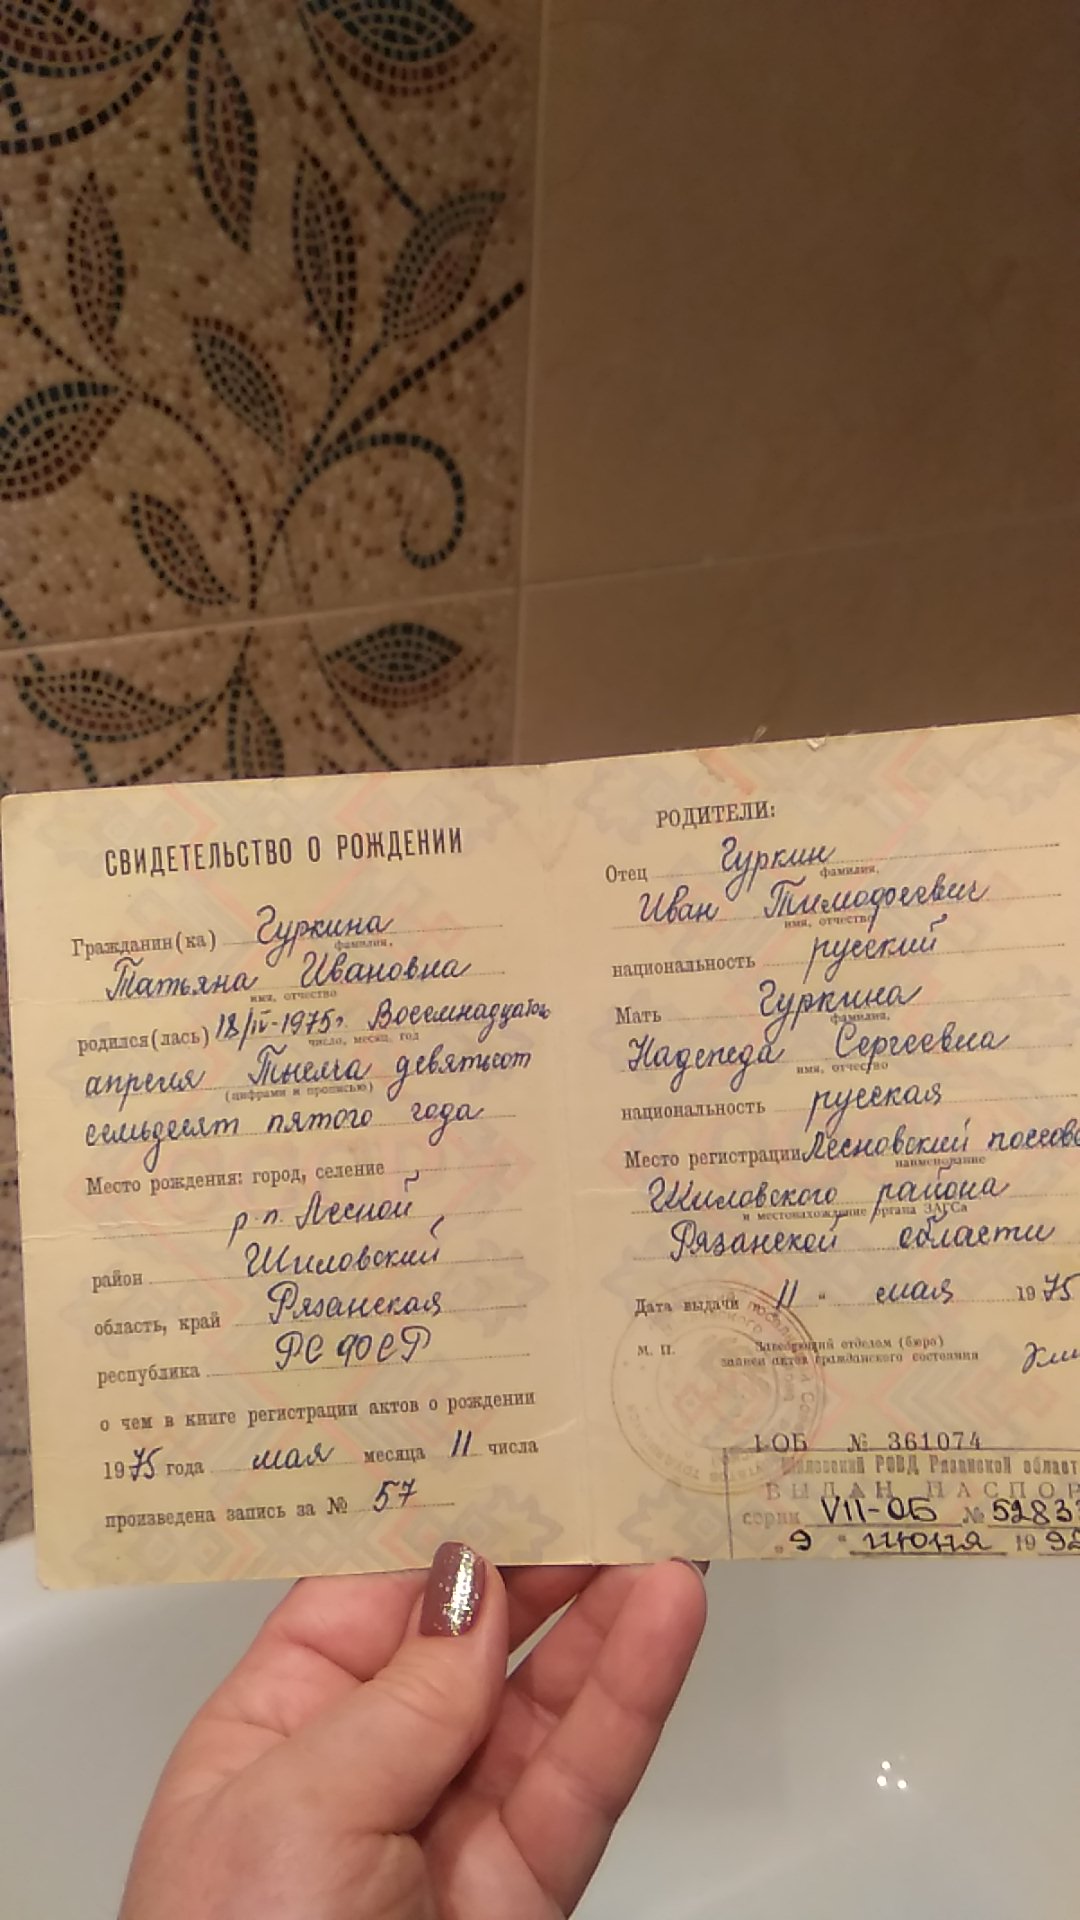 СВИДЕТЕЛЬСТВО О РОЖДЕНИИ
Гражданин(ка) Гуркина
фамилия,
Татьяна Ивановна
имя, отчество
родился(лась) 18/IV-1975г. Восемнадцатого
число, месяц, год
апреля Тысяча девятьсот
(цифрами и прописью)
семьдесят пятого года
Место рождения: город, селение
р.п. Лесной
район Шиловский
область, край Рязанская
республика РСФСР
о чем в книге регистрации актов о рождении
1975 года мая месяца 11 числа
произведена запись за № 57
РОДИТЕЛИ:
Отец Гуркин
фамилия,
Иван Тимофеевич
имя, отчество
национальность русский
Мать Гуркина
фамилия,
Надежда Сергеевна
имя, отчество
национальность русская
Место регистрации Лесновский поссове
наименование
Шиловского района
и местонахождение органа ЗАГСа
Рязанской области
Дата выдачи 11 " мая 1975
М. П. Заведующий отделом (бюро)
записи актов гражданского состояния
I-ОБ № 361074
Шиловский РОВД Рязанской област
ВЫДАН ПАСПОР
серии VII-ОБ № 5283
„ 9 " июня 1992